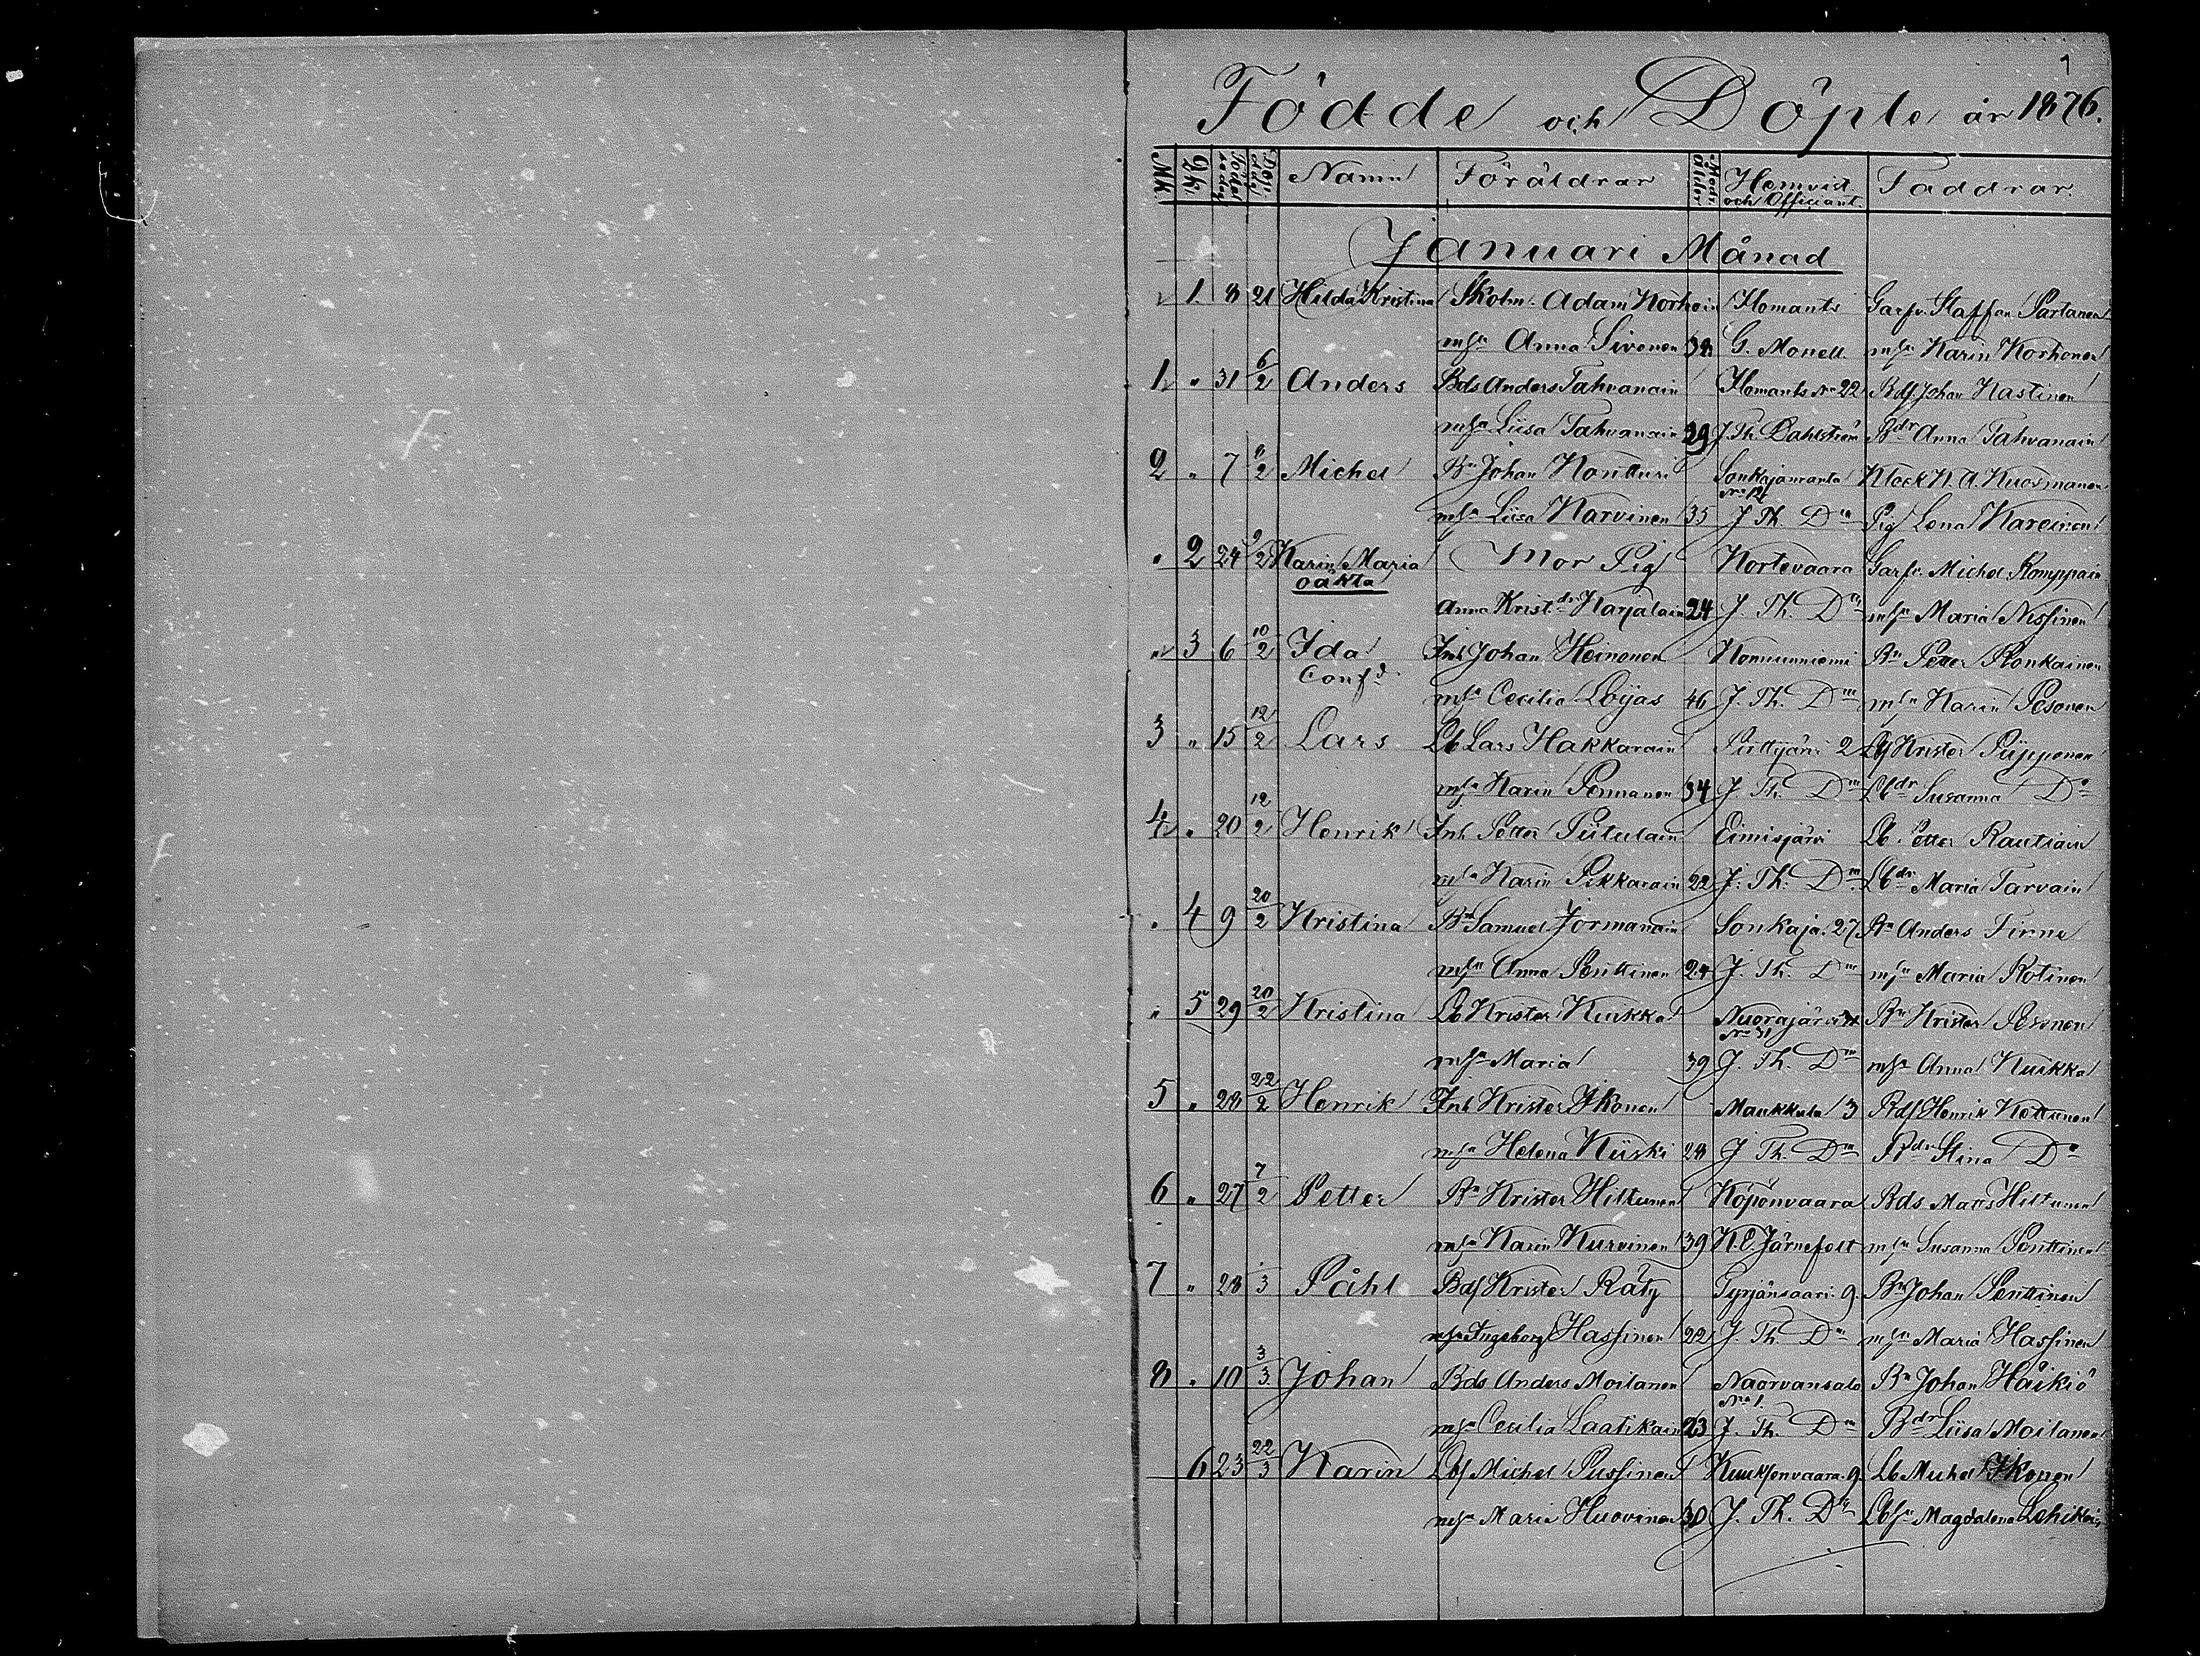 1
Födde och Döpte år 1876.
Mk. Qk. Födelsedag Döp. dag Namn Föräldrar Modr. Ålder Hemvist och Officiant. Faddrar.
Januari Månad
1 8 21 Hilda Kristina Skolm. Adam Korhoin Ilomants Garfv. Staffan Partanen
mhu Anna Sivonen 38 G. Monell mhu Karin Korhonen
1 " 31 6/2 Anders Bds Anders Tahvanain Ilomants No 22 Bds Johan Kastinen
mhu Liisa Tahvanain 29 J. Th. Dahlström Bdr Anna Tahvanain
2 " 7 /2 Michel Bn Johan Kontturi Sonkajanranta No 12 Klock K. A. Kuosmanen
mhu Liisa Karvinen 35 J Th. Dm Pig Lena Kareinen
" 2 24 9/2 Karin Maria oäkta Mor Pig Kortevaara Garfv. Michel Romppain
Anna Krist. dr Karjalain 24 J. Th. Dm mhu Maria Nissinen
" 3 6 10/2 Ida Conf d. Inh Johan Heinonen Konnunniemi Bn Petter Ronkainen
mhu Cecilia Loijas 46 J. Th. Dm mhu Karin Pesonen
3 " 15 12/2 Lars Lb Lars Hakkarain Pirttijärvi 2 Lbs Krister Piipponen
mhu Karin Pennanen 34 J Th. Dm Lbdr Susanna Do
4 " 20 12/2 Henrik Inh Petter Piitulain Eimisjärvi Lb. Petter Rautiain
mhu Karin Pikkarain 22 J. Th. Dm Lbdr Maria Tarvain
" 4 9 20/2 Kristina Bn Samuel Jormanain Sonkaja. 27 Bn Anders Tirne
mhu Anna Penttinen 24 J. Th. Dm mhu Maria Kotinen
" 5 29 20/2 Kristina Lb Krister Kuikka Nuorajärvi No 31 Bn Krister Pesonen
mhu Maria 39 J. Th. Dm mhu Anna Kuikka
5 " 28 22/2 Henrik Inh Krister Ikonen Maukkula 3 Bds Henrik Kettunen
mhu Helena Kiiski 28 J Th. Dm Bdr Stina Do
6 " 27 7/2 Petter Bn Krister Hiltunen Koponvaara Bds Mats Hiltunen
mhu Karin Kurvinen 39 K. E. Järnefelt mhu Susanna Penttinen
7 " 28 /3 Påhl Bds Krister Räty Pyyjänsaari. 9. Bn Johan Penttinen
mhu Ingeborg Hassinen 22 J. Th. Dm mhu Maria Hassinen
8 " 10 3/3 Johan Bds Anders Moilanen Naarvansalo No 1. Bn Johan Häikiö
mhu Cecilia Laatikain 23 J. Th. Dm Bdr Liisa Moilanen
6 23 22/3 Karin Lbs Michel Pussinen Kuuksenvaara. 9. Lb Michel Ikonen
mhu Maria Huovinen 30 J. Th. Dm Lbhu Magdalena Lehikoin